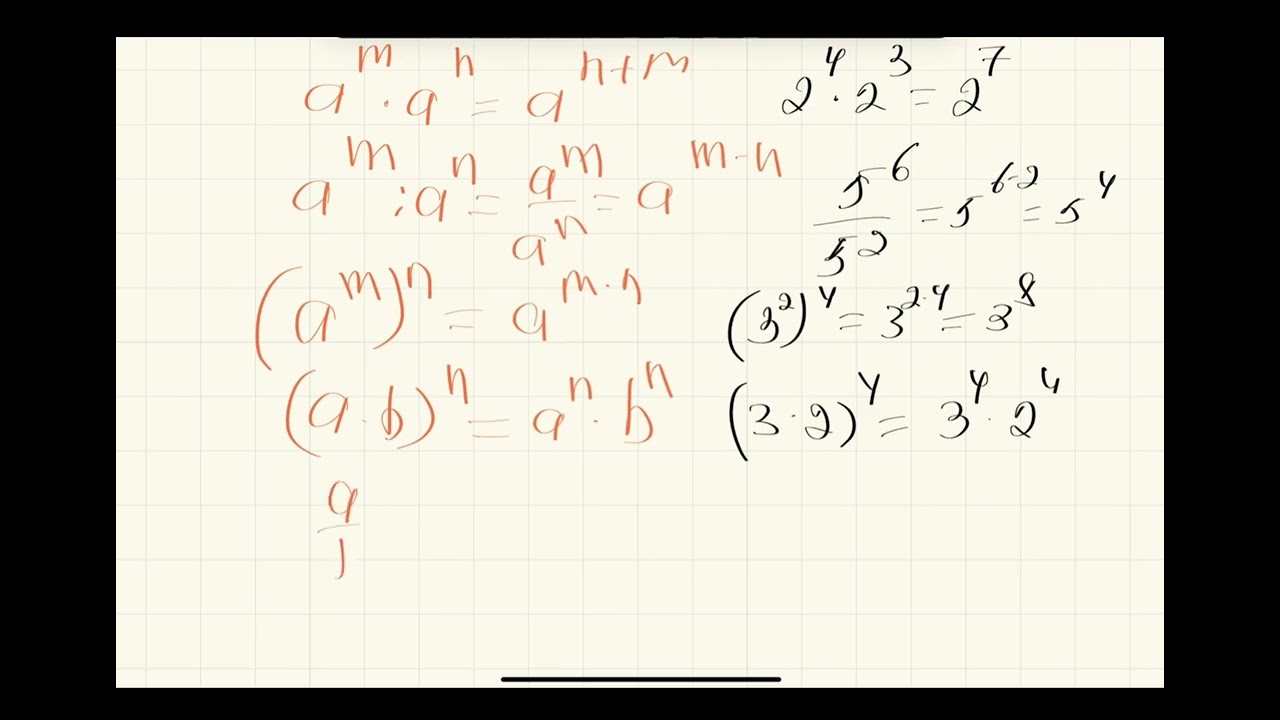 a^m · a^n = a^{n+m}    2^4 · 2^3 = 2^7
a^m : a^n = \frac{a^m}{a^n} = a^{m-n}    \frac{5^6}{5^2} = 5^{6-2} = 5^4
(a^m)^n = a^{m·n}    (3^2)^4 = 3^{2·4} = 3^8
(a·b)^n = a^n · b^n    (3·2)^4 = 3^4 · 2^4